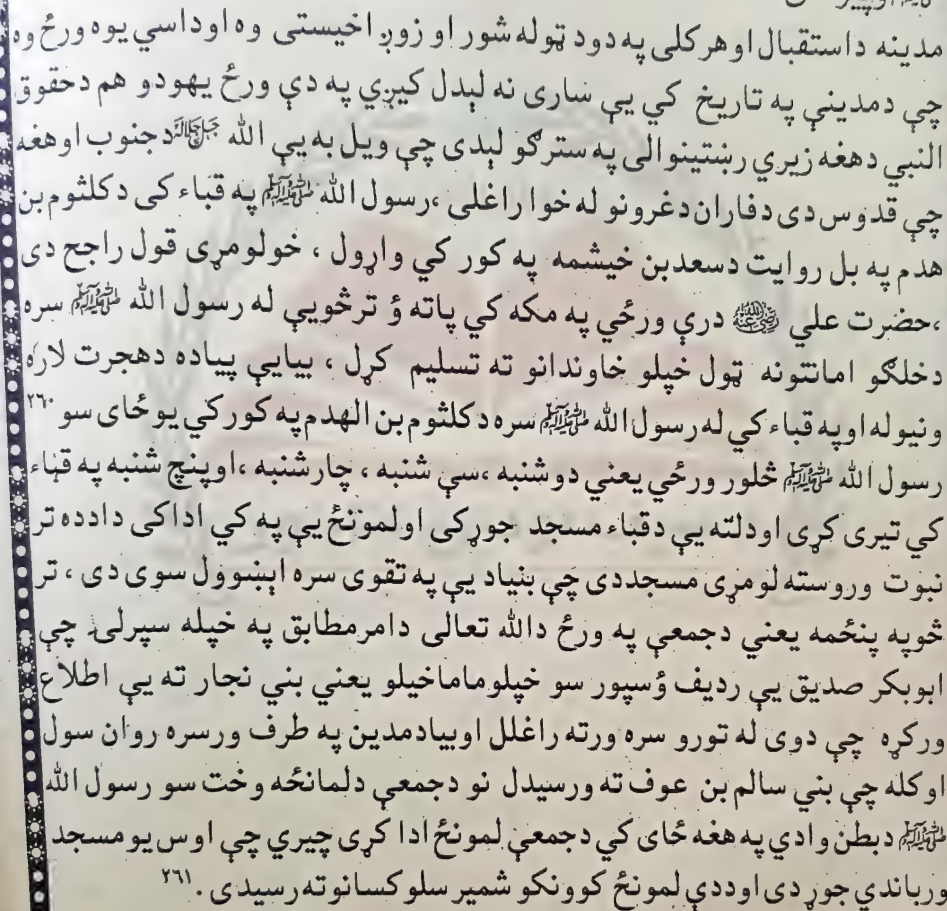 مدينه داستقبال اوهرکلی په دود ټوله شور او زوږ اخيستی وه اوداسي يوه ورځ وه
چې دمدينې په تاريخ کي يې ساری نه لېدل کيږي په دې ورځ يهودو هم دحقوق
النبي دهغه زيري رښتينوالی په سترګو لېدی چې ويل به يې الله جل جلاله دجنوب اوهغه
چې قدوس دی دفاران دغرونو له خوا راغلی ،رسول الله ﷺ په قباء کی دکلثوم بن
هدم په بل روايت دسعدبن خيشمه په کور کي واړول ، خولومړی قول راجح دی
،حضرت علي رضی الله عنه درې ورځي په مکه کي پاته ؤ ترڅويې له رسول الله ﷺ سره
دخلګو امانتونه ټول خپلو خاوندانو ته تسليم کړل ، بيايې پياده دهجرت لاره
ونيوله اوپه قباء کي له رسول الله ﷺ سره دکلثوم بن الهدم په کورکي يوځای سو ٢٦٠
رسول الله ﷺ څلور ورځي يعني دوشنبه ،سې شنبه ، چارشنبه ،اوپنچ شنبه په قباء
کي تيری کړی اودلته يې دقباء مسجد جوړکی اولمونځ يې په کي اداکی دادده تر
نبوت وروسته لومړی مسجددی چې بنياد يې په تقوی سره اېښوول سوی دی ، تر
څوپه پنځمه يعني دجمعې په ورځ دالله تعالی دامرمطابق په خپله سپرلۍ چې
ابوبکر صديق يې رديف ؤسپور سو خپلوماماخيلو يعني بني نجار ته يې اطلاع
ورکړه چې دوی له تورو سره ورته راغلل اوبيادمدين په طرف ورسره روان سول
اوکله چې بني سالم بن عوف ته ورسيدل نو دجمعې دلمانځه وخت سو رسول الله
ﷺ دبطن وادي په هغه ځای کي دجمعې لمونځ ادا کړی چيري چې اوس يو مسجد
ورباندي جوړ دی اوددې لمونځ کوونکو شمير سلو کسانوته رسيدی .٢٦١